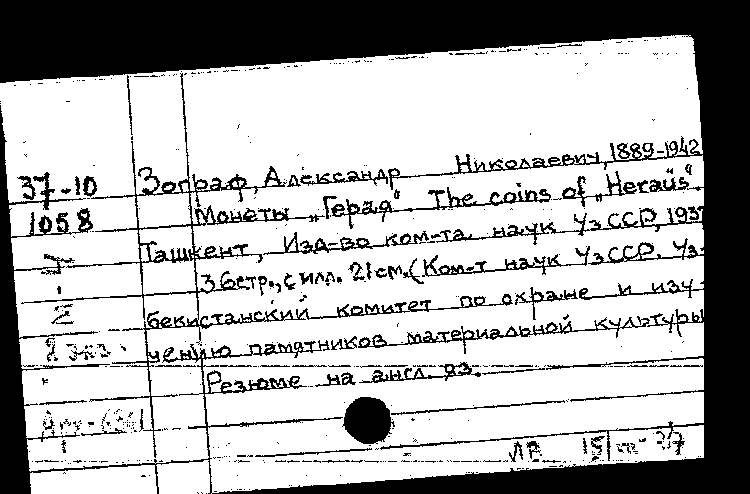 37-10 Зограф, Александр Николаевич, 1889-1942
1058 Монеты „Герая“. The coins of „Heraüs“.
Ташкент, Изд-во ком-та наук УзССР, 1937
36стр., с илл. 21см. (Ком-т наук УзССР. Уз-
бекистанский комитет по охране и изу-
2 экз. чению памятников материальной культуры
Резюме на англ. яз.